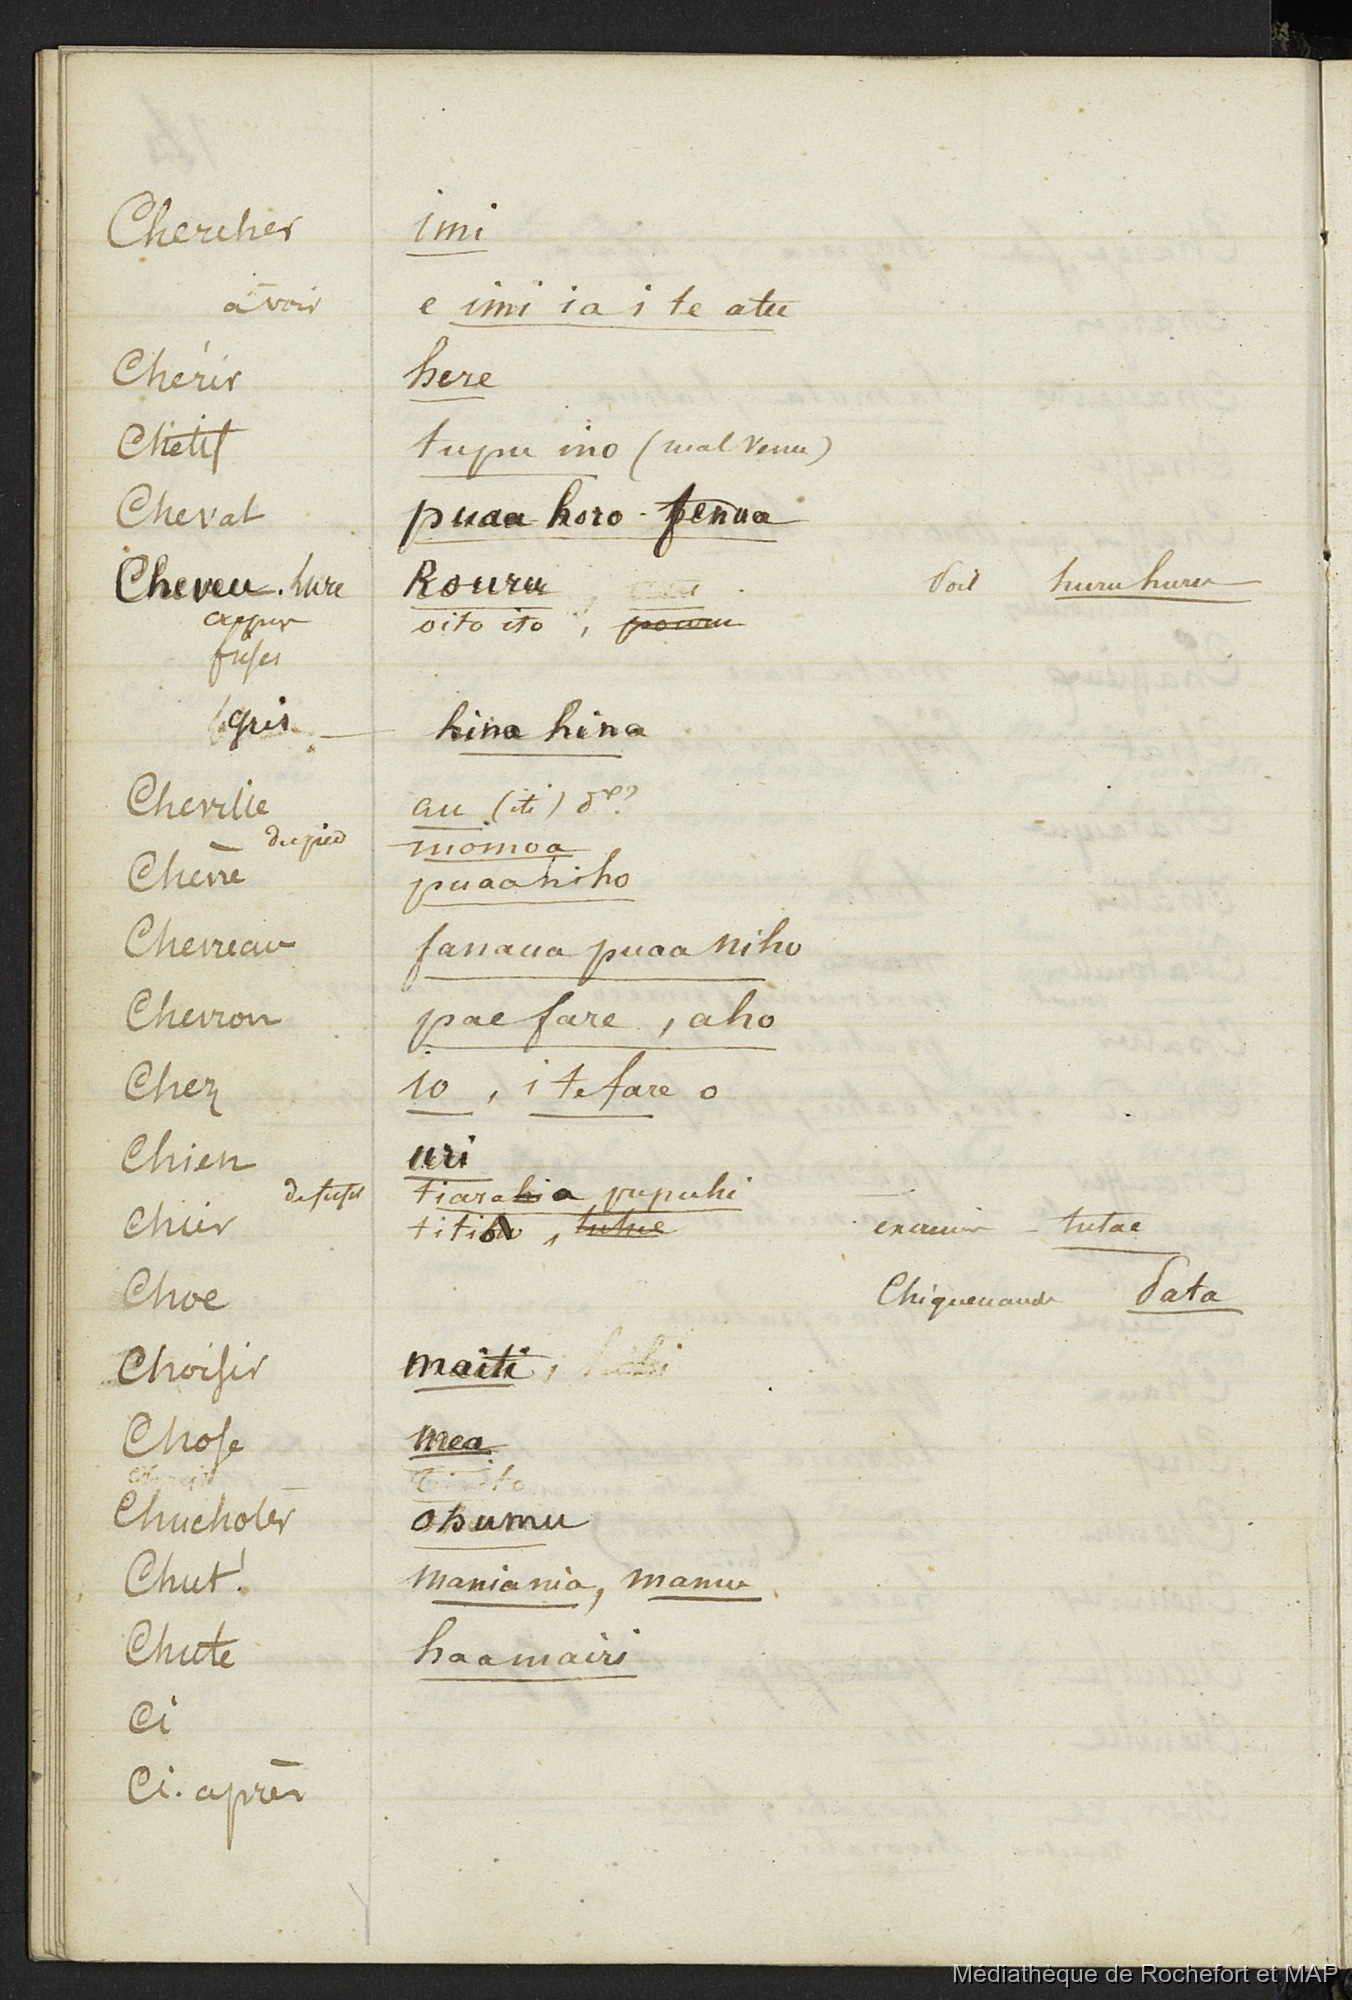 Chercher imi
à voir e imi ia i te atu
Chérir here
Chétif tupu ino (mal venu)
Cheval puaa horo-fenua
Cheveu. lure Rouru Poil huruhuru
crépu oito ito,
frisés
gris hina hina
Cheville au (iti) dr?
du pied momoa
Chèvre puaaniho
Chevreau fanaua puaa niho
Chevron pae fare, aho
Chez io, i te fare o
Chien uri
de fusil tiara a pupuhi
Chier titio, tutue excrement - tutae
Choe Chiquenaude Pata
Choisir maiti,
Chose mea
Chuchoter ohumu
Chut! maniania, mamu
Chute haamairi
Ci
Ci-après
Médiathèque de Rochefort et MAP